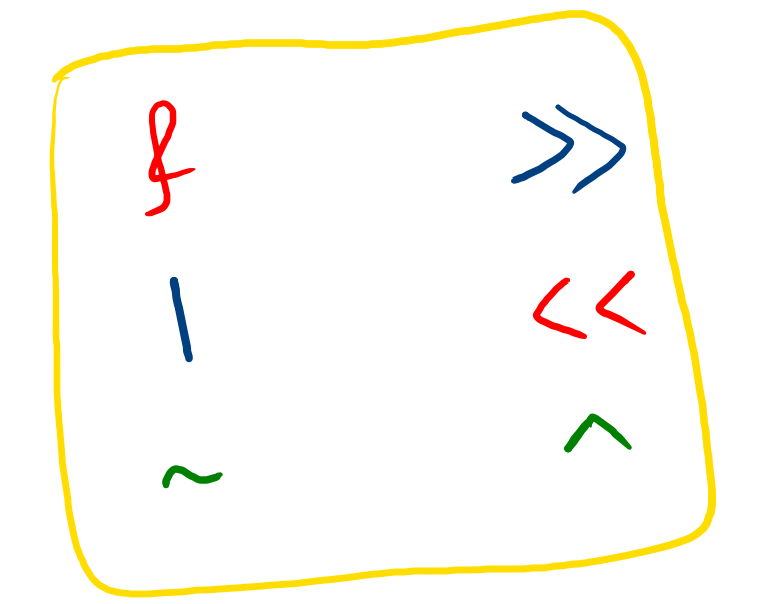 & >>
| <<
~ ^